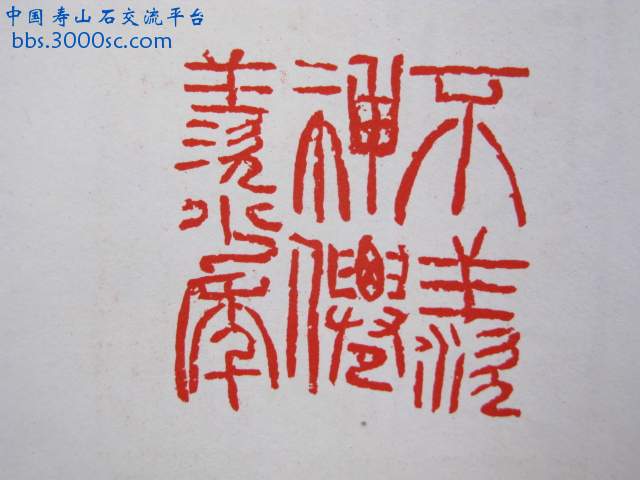 中国寿山石交流平台
bbs.3000sc.com
不羨
神僊
羨少年